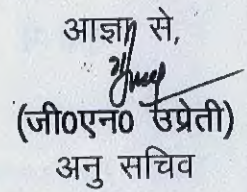 आज्ञा से,
(जी0एन0 उप्रेती)
अनु सचिव